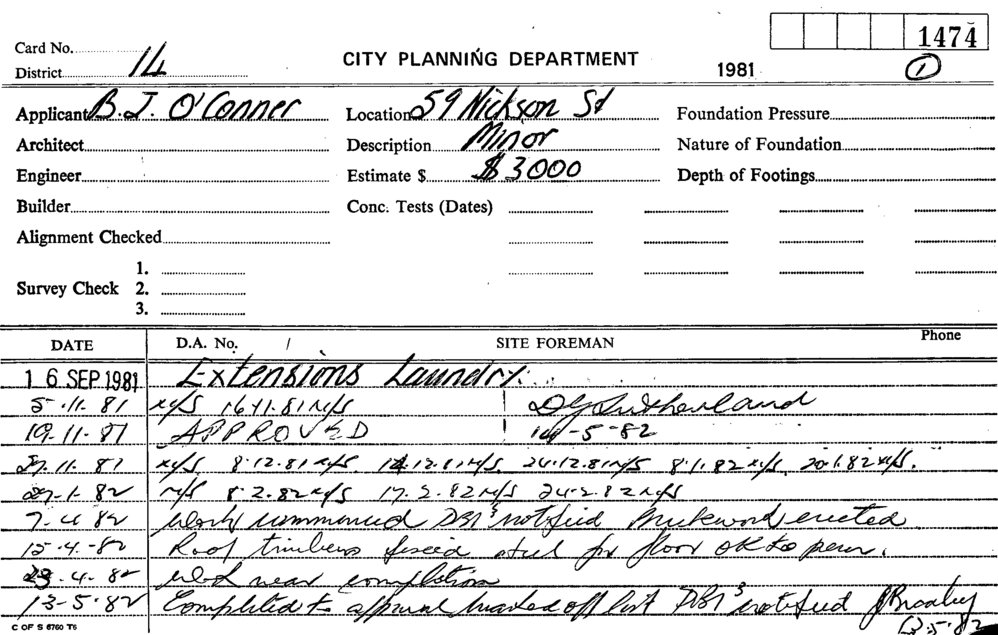 1474
Card No.
District 14
CITY PLANNING DEPARTMENT
1981
1
Applicant B.J. O'Conner Location 59 Nickson St Foundation Pressure
Architect Description Minor Nature of Foundation
Engineer Estimate $ $3000 Depth of Footings
Builder Conc. Tests (Dates)
Alignment Checked
Survey Check 1.
2.
3.
DATE D.A. No. / SITE FOREMAN Phone
16 SEP 1981 Extensions Laundry.
5-11-81 N/S 16-11-81 N/S D G Sutherland
19-11-81 APPROVED 14-5-82
27.11.81 N/S 8.12.81 N/S 14.12.81 N/S 24.12.81 N/S 8.1.82 N/S 20.1.82 N/S.
27-1-82 N/S 8.2.82 N/S 17.2.82 N/S 24.2.82 N/S
7-4-82 Work commenced DBI's notified Brickwork erected
15-4-82 Roof timbers fixed steel for floor OK to pour.
23-4-82 Work near completion
13-5-82 Completed to approval marked off list DBI's notified
13.5.82
C OF S 6760 T6